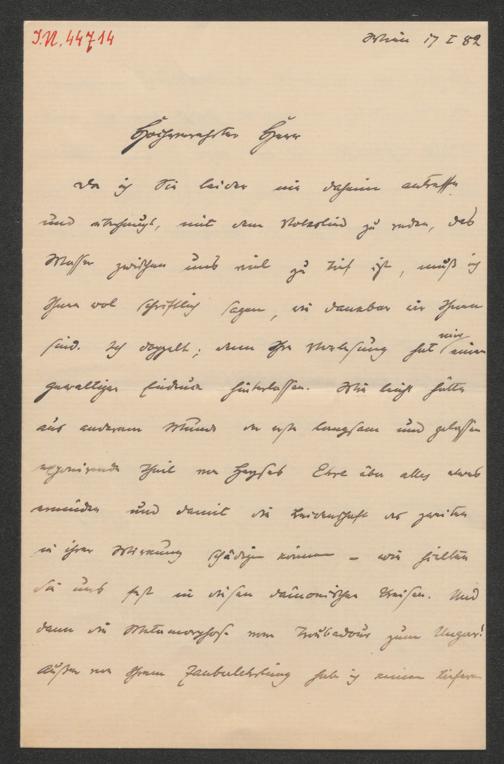 I.N. 44714
Wien 17 I 82
Hochverehrter Herr
Da ich Sie leider nie daheim antreffe
und überhaupt, mit dem Volkslied zu reden, das
Wasser zwischen uns viel zu tief ist, muß ich
Ihnen wol schriftlich sagen, wie dankbar wir Ihnen
sind. Ich doppelt; denn Ihre Vorlesung hat mir einen
gewaltigen Eindruck hinterlassen. Wie leicht hätte
aus anderem Munde der erste langsam und gelassen
exponirende Theil von Heyses Ehre über alles etwas
ermüden und damit die Leidenschaft des zweiten
in ihrer Wirkung schädigen können – wie hielten
Sie uns fest in diesen dämonischen Kreisen. Und
dann die Metamorphose vom Troubadour zum Ungar!
Außer von Ihrem Zauberlehrling hab ich keinen tieferen